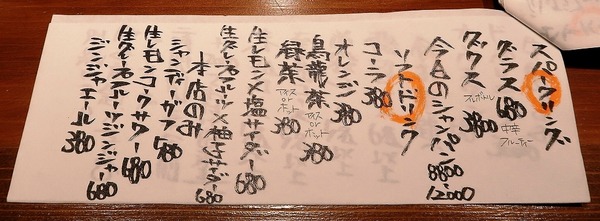 スパークリング
グラス 680 中辛 フルーティー
ボトル 3800 フルボトル
今月のシャンパン 8800〜12000
ソフトドリンク
コーラ 380
オレンジ 380
烏龍茶 アイスorホット 380
緑茶 アイスorホット 380
生レモン×塩サイダー 680
生グレープフルーツ×柚子サイダー 680
本店のみ
シャンディーガフ 680
生レモンコークサワー 680
生グレープフルーツジンジャー 680
ジンジャエール 380